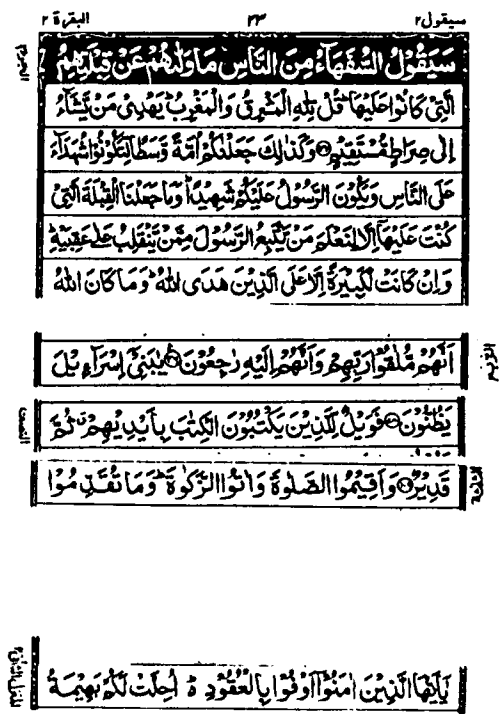 سيقول٢ ٢٣ البقرة ٢
سَيَقُوْلُ السُّفَهَآءُ مِنَ النَّاسِ مَا وَلّٰىهُمْ عَنْ قِبْلَتِهِمُ
الَّتِيْ كَانُوْا عَلَيْهَا ؕ قُلْ لِّلّٰهِ الْمَشْرِقُ وَالْمَغْرِبُ ؕ يَهْدِيْ مَنْ يَّشَآءُ
اِلٰى صِرَاطٍ مُّسْتَقِيْمٍ ۝ وَكَذٰلِكَ جَعَلْنٰكُمْ اُمَّةً وَّسَطًا لِّتَكُوْنُوْا شُهَدَآءَ
عَلَى النَّاسِ وَيَكُوْنَ الرَّسُوْلُ عَلَيْكُمْ شَهِيْدًا ؕ وَمَا جَعَلْنَا الْقِبْلَةَ الَّتِيْ
كُنْتَ عَلَيْهَآ اِلَّا لِنَعْلَمَ مَنْ يَّتَّبِعُ الرَّسُوْلَ مِمَّنْ يَّنْقَلِبُ عَلٰى عَقِبَيْهِ ؕ
وَاِنْ كَانَتْ لَكَبِيْرَةً اِلَّا عَلَى الَّذِيْنَ هَدَى اللّٰهُ ؕ وَمَا كَانَ اللّٰهُ
اَنَّهُمْ مُّلٰقُوْا رَبِّهِمْ وَاَنَّهُمْ اِلَيْهِ رٰجِعُوْنَ ۝ يٰبَنِيْٓ اِسْرَآءِيْلَ
يَظُنُّوْنَ ۝ فَوَيْلٌ لِّلَّذِيْنَ يَكْتُبُوْنَ الْكِتٰبَ بِاَيْدِيْهِمْ ثُمَّ
النصف
قَدِيْرٌ ۝ وَاَقِيْمُوا الصَّلٰوةَ وَاٰتُوا الزَّكٰوةَ ؕ وَمَا تُقَدِّمُوْا
يٰٓاَيُّهَا الَّذِيْنَ اٰمَنُوْٓا اَوْفُوْا بِالْعُقُوْدِ ؕ اُحِلَّتْ لَكُمْ بَهِيْمَةُ